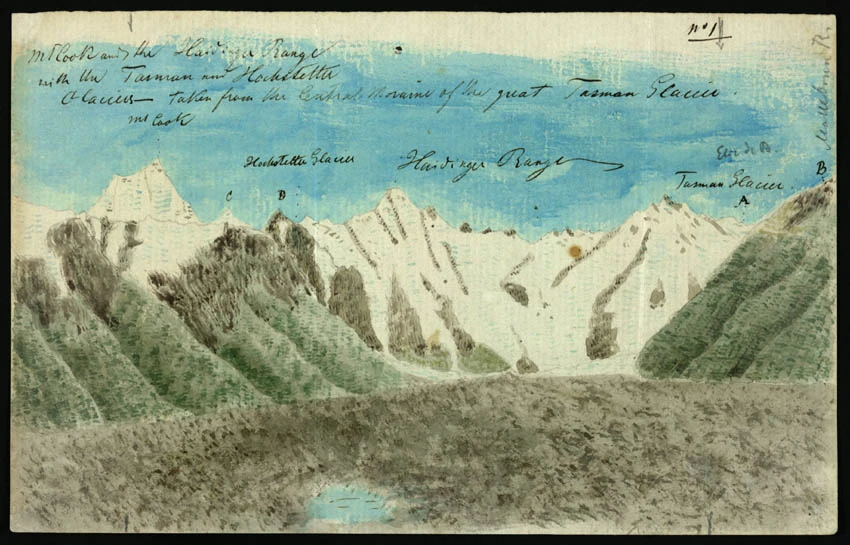 No 1
Mt Cook and the Haidinger Range
with the Tasman and Hochstetter
Glaciers — taken from the Central Moraine of the great Tasman Glacier.
Mt Cook
Hochstetter Glacier
Haidinger Range
Tasman Glacier.
C
D
A
B